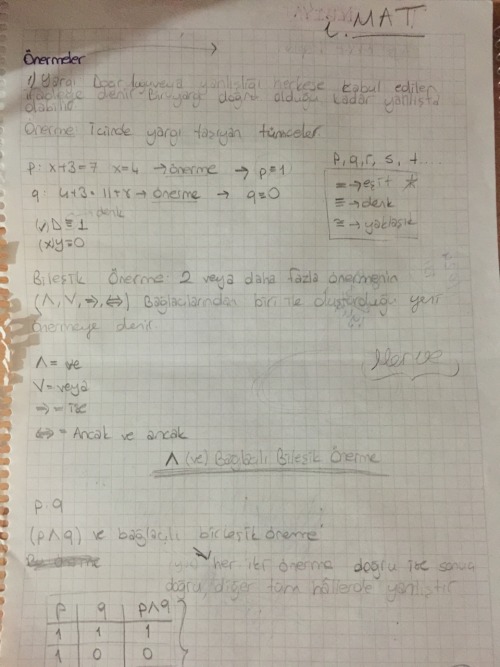 MAT
Önermeler
1) Yargı Doğruluğu veya yanlışlığı herkese kabul edilen
ifadeye denir. Bir yargı doğru olduğu kadar yanlışta
olabilir.
Önerme İçinde yargı taşıyan tümceler
P, q, r, s, t.....
p: x+3=7 x=4 → önerme → p≡1
= → eşit
q: 4+3 → önerme → q≡0
≡ → denk
denk
≅ → yaklaşık
(✓) D≡1
(x) y=0
Bileşik Önerme: 2 veya daha fazla önermenin
(∧, ∨, ⇒, ⇔) Bağlaçlarından biri ile oluşturduğu yeni
önermeye denir
∧ = ve
∨ = veya
⇒ = ise
⇔ = Ancak ve ancak
∧ (ve) Bağlaçlı Bileşik Önerme
p: q
(p∧q) ve bağlaçlı birleşik önerme
her iki önerme doğru ise sonuç
doğru, diğer tüm hâllerde yanlıştır
p q p∧q
1 1 1
1 0 0